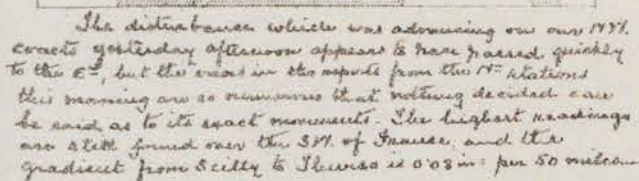 The disturbance which was advancing on our NW.
coasts yesterday afternoon appears to have passed quickly
to the Eᵈ, but the errors in the reports from the Nⁿ stations
this morning are so numerous that nothing decided can
be said as to its exact movements. The highest readings
are still found over the SW. of France, and the
gradient from Scilly to Thurso is 0.03 in: per 50 miles.